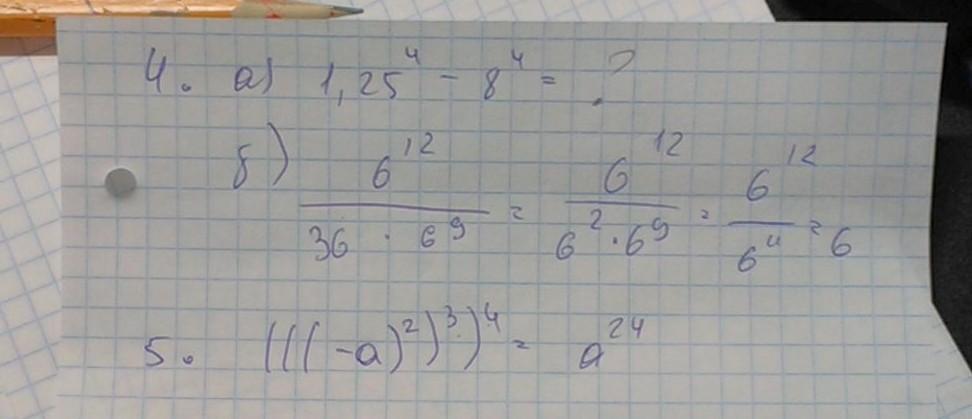 4. а) 1,25⁴ - 8⁴ = ?
б) 6¹² / (36 · 6⁹) = 6¹² / (6² · 6⁹) = 6¹² / 6¹¹ = 6
5. (((-a)²)³)⁴ = a²⁴